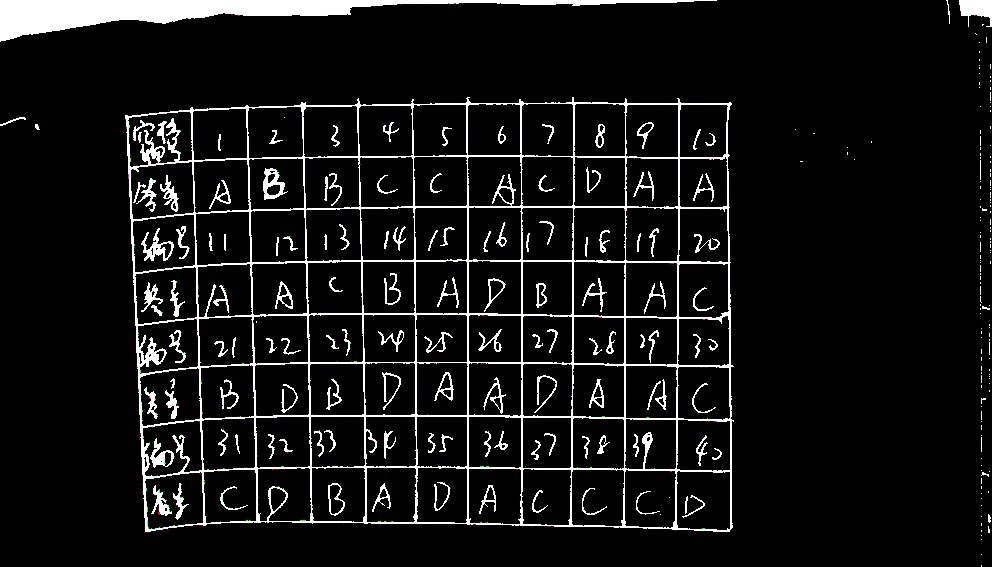 编号 1 2 3 4 5 6 7 8 9 10
答案 A B B C C A C D A A
编号 11 12 13 14 15 16 17 18 19 20
答案 A A C B A D B A A C
编号 21 22 23 24 25 26 27 28 29 30
答案 B D B D A A D A A C
编号 31 32 33 34 35 36 37 38 39 40
答案 C D B A D A C C C D